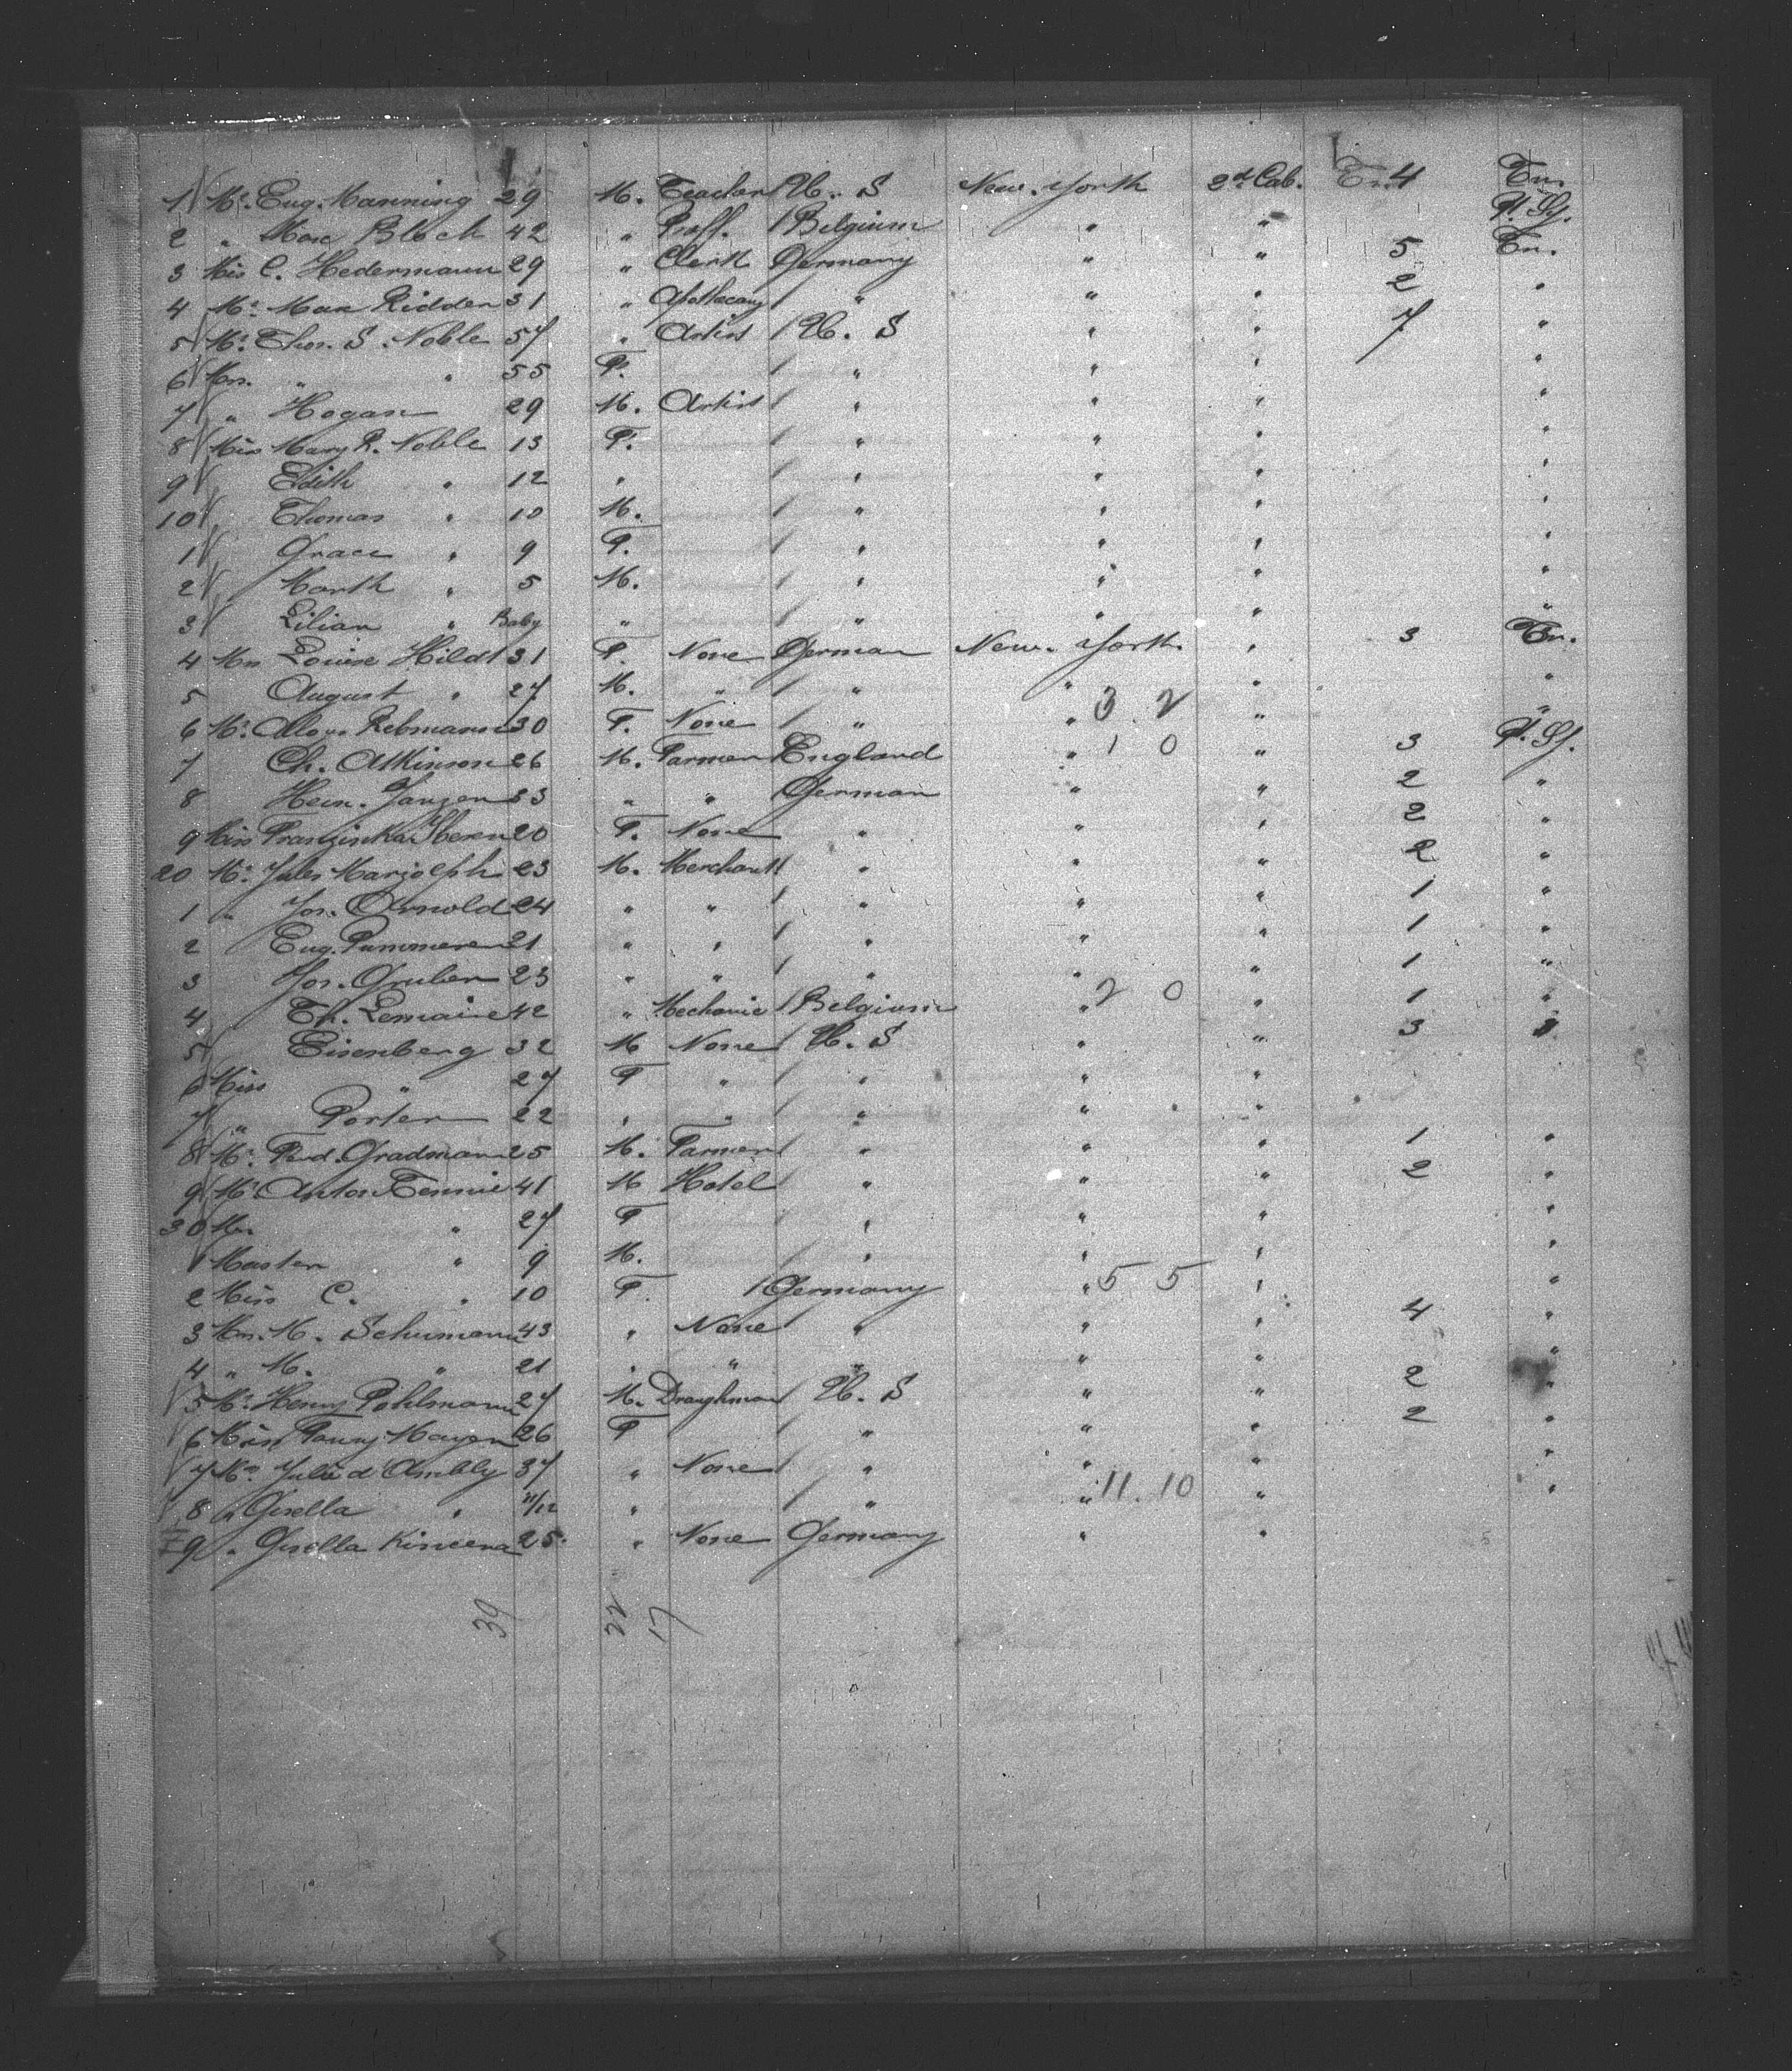 1 Mr. Eug. Manning 29 M. Teacher U. S New. York 2d Cab. 4 En.
2 " Max Bloch 42 " Proff. Belgium " " P. Sf.
3 Miss C. Hedermann 29 " Clerk Germany " " 5 En.
4 Mr. Max Ridder 31 " Apothecary " " " 2 "
5 Mr. Thos. S. Noble 57 " Artist U. S " " 7 "
6 Mrs. " " 55 F. " " " "
7 " Hogan 29 M. Artist " " " "
8 Miss Mary R. Noble 13 F. " " " "
9 Edith " 12 " " " " "
10 Thomas " 10 M. " " " "
1 Grace " 9 F. " " " "
2 " 5 M. " " " "
3 Lilian " Baby " " " " "
4 Mrs Louise Hildt 31 F. None German New. York " 3 En.
5 August " 27 M. " " " " "
6 Mr. Rebmann 30 F. None " " 3 2 " "
7 Ch. Atkinson 26 M. Farmer England " 1 0 " 3 P. Sf.
8 Hein. Janzen 33 " " German " " 2 "
9 Miss 20 F. None " " " 2 "
20 Mr. Jules Marjolph 23 M. Merchant " " " 2 "
1 " Jos. Arnold 24 " " " " " 1 "
2 Eug. Pummerer 21 " " " " " 1 "
3 Jos. Gruber 23 " " " " " 1 "
4 Th. Lemaire 42 " Mechanic Belgium " 2 0 " 1 "
5 Eisenberg 32 M None U. S " " 3
6 Miss " 27 F " " " "
7 " Porter 22 " " " " "
8 Mr. Ferd. Gradmann 25 M. Farmer " " " 1 "
9 Mr. Anton Tennie 41 M Hotel " " " 2 "
30 Mrs. " 27 F " " " "
1 Master " 9 M. " " " "
2 Miss C. " 10 F. Germany " 5 5 " "
3 Mrs. M. Schumann 43 " None " " " 4 "
4 " M. " 21 " " " " " "
5 Mr. Henry Pohlmann 27 M. Draughman U. S " " 2 "
6 Miss Fanny Mayer 26 F " " " 2 "
7 Julie d'Ambly 37 " None " " " "
8 " Gisella " 11/12 " " " 11. 10 " "
9 " Gisella 25. " None Germany " "
39 22 17